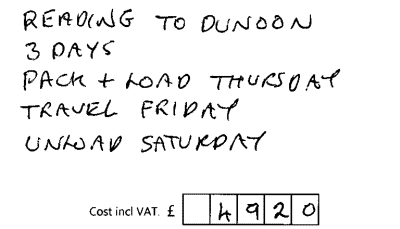 READING TO DUNOON
3 DAYS
PACK + LOAD THURSDAY
TRAVEL FRIDAY
UNLOAD SATURDAY
Cost incl VAT. £ 4920